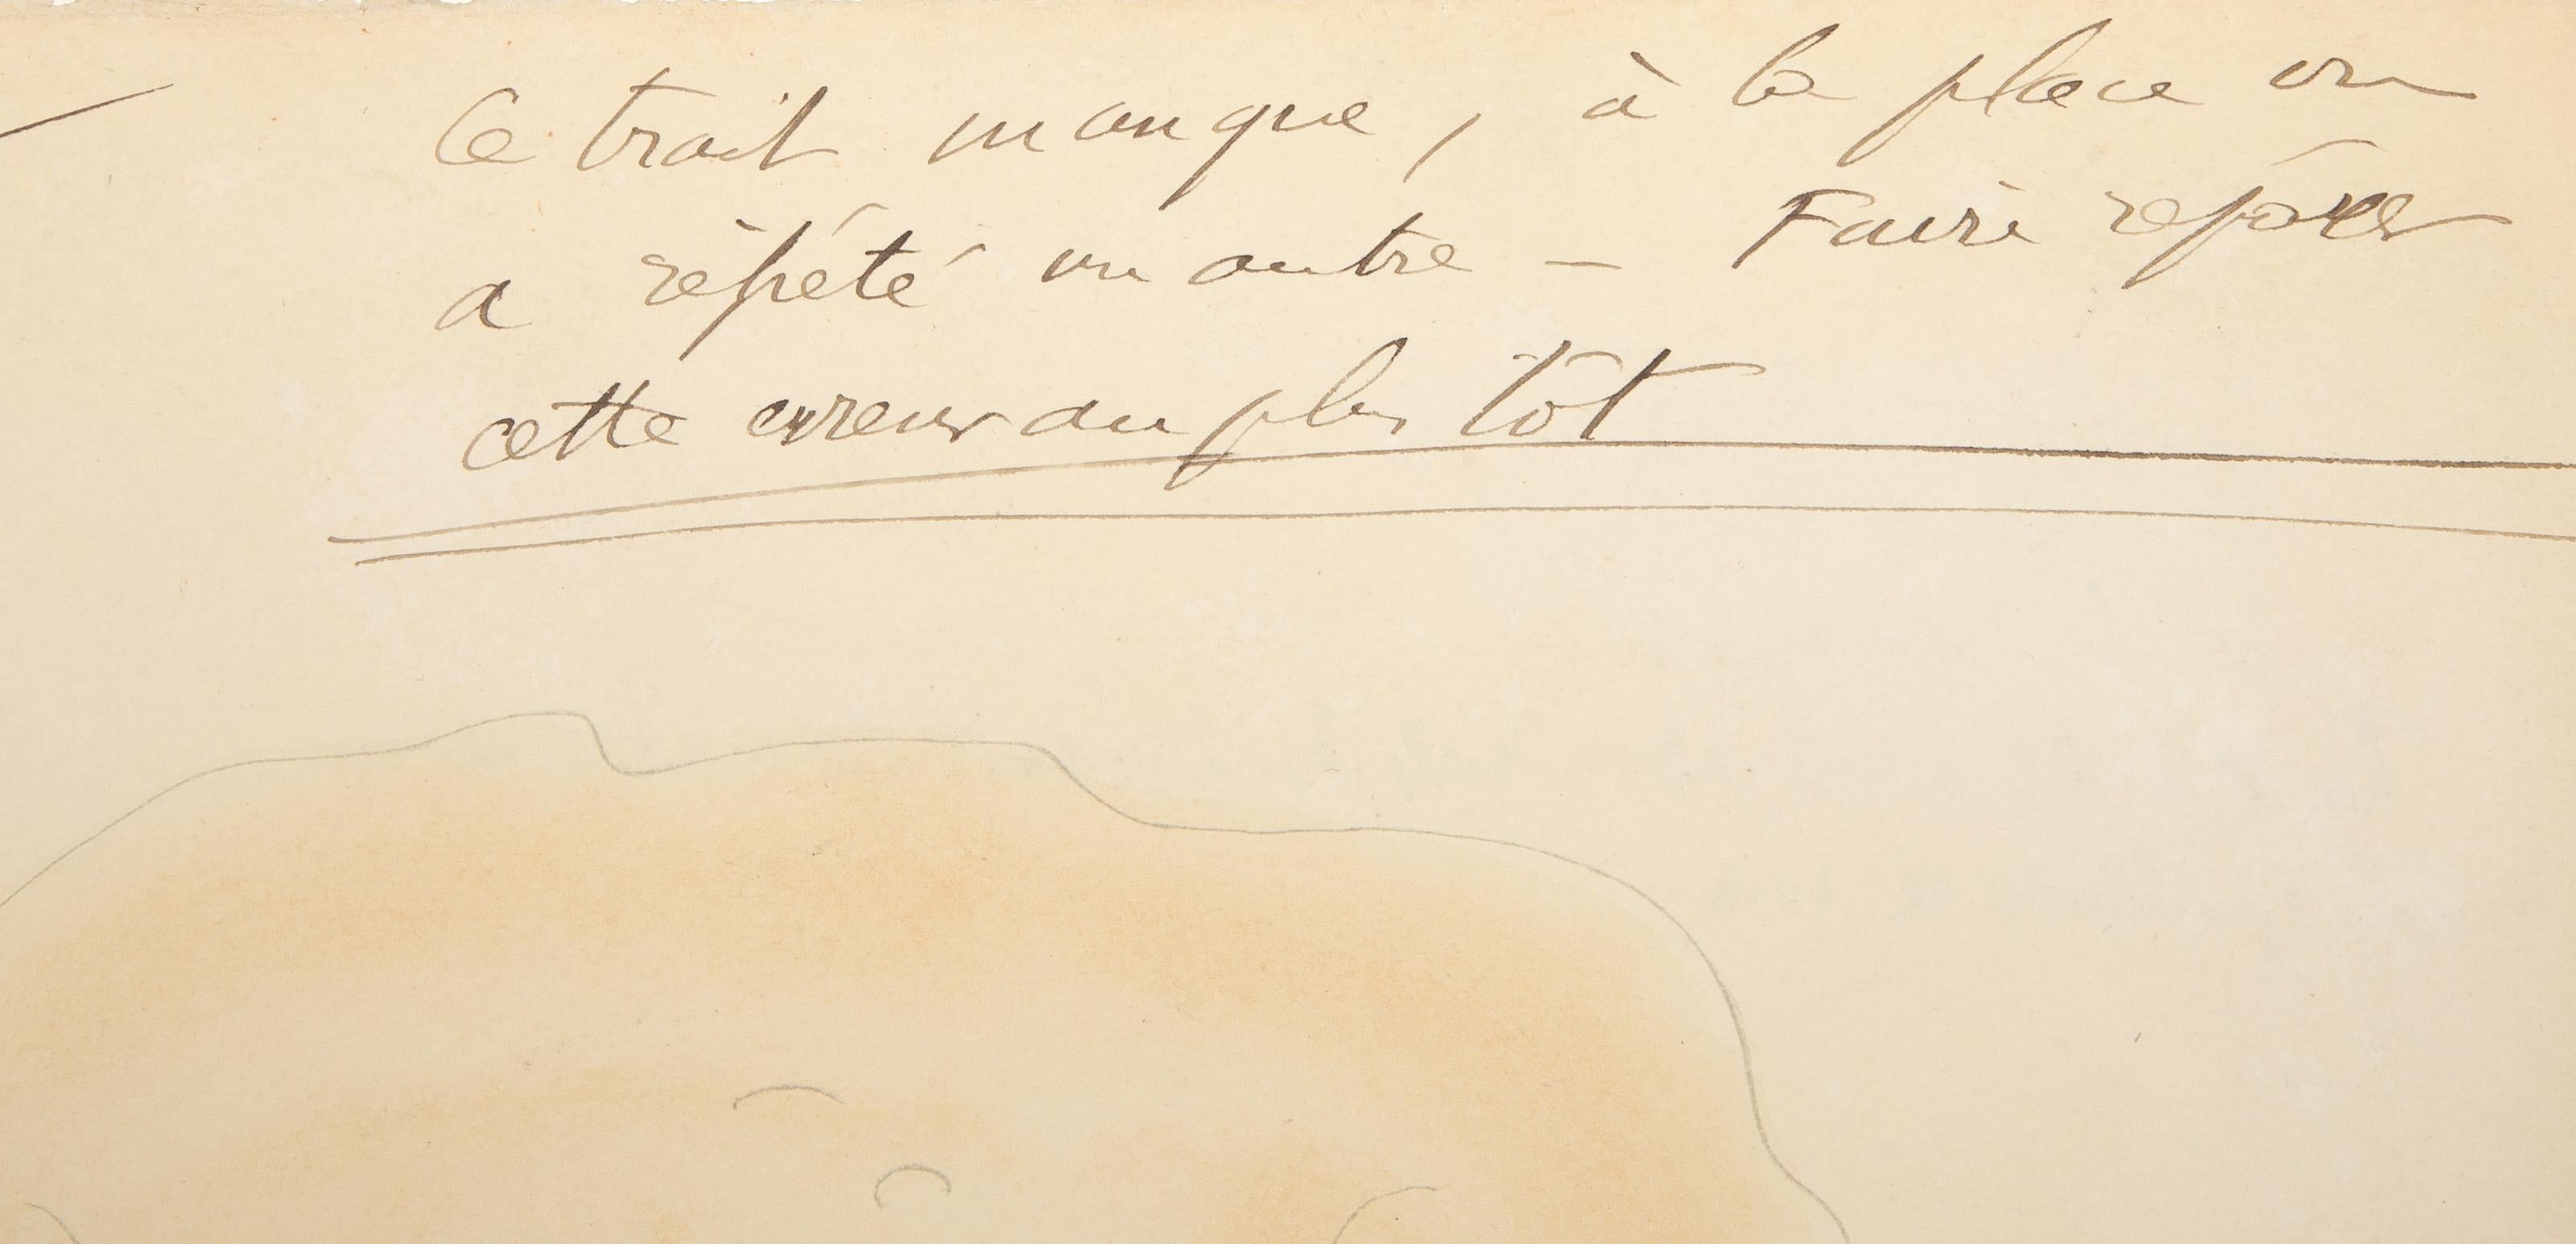 Ce trait manque, à la place on
a répété un autre — Faire réparer
cette erreur au plus tôt